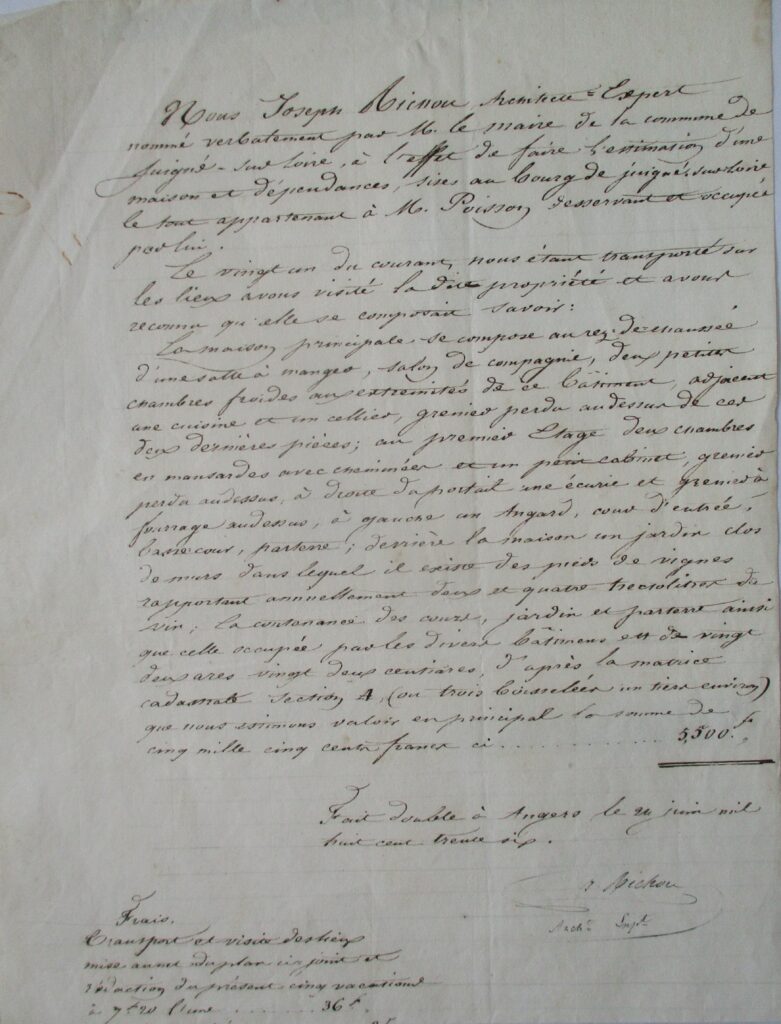 Nous Joseph Richou Architecte-Expert
nommé verbalement par M. le maire de la commune de
juigné-sur Loire, à l'effet de faire l'estimation d'une
maison et dépendances, sises au bourg de juigné, sur Loire,
le tout appartenant à M. Poisson desservant et occupée
par lui.
Le vingt un du courant, nous étant transporté sur
les lieux avons visité la dite propriété et avons
reconnu qu'elle se composait savoir:
La maison principale se compose au rez-de-chaussée
d'une salle à manger, salon de compagnie, deux petites
chambres froides aux extrémités de ce bâtiment, adjacent
une cuisine et un cellier, grenier perdu audessus de ces
deux dernières pièces; au premier Etage deux chambres
en mansardes avec cheminées et un petit cabinet, grenier
perdu audessus, à droite du portail une écurie et grenier à
fourrage audessus, à gauche un angard, cour d'entrée,
basse cour, parterre; derrière la maison un jardin clos
de murs dans lequel il existe des pieds de vignes
rapportant annuellement deux et quatre hectolitres de
vin; la contenance des cours, jardin et parterre ainsi
que celle occupée par les divers bâtimens est de vingt
deux ares vingt deux centiares, d'après la matrice
cadastrale section A, (ou trois boisselées un tiers environ)
que nous estimons valoir en principal la somme de
cinq mille cinq cents francs ci . . . . . . . . . . . . 5,500. f
Fait double à Angers le 24 juin mil
huit cent trente six.
J. Richou
Archte Expt
Frais.
Transport et visite des lieux
mise au net du plan ci joint et
rédaction du présent cinq vacations
à 7f 20 l'une . . . . . . . 36f.